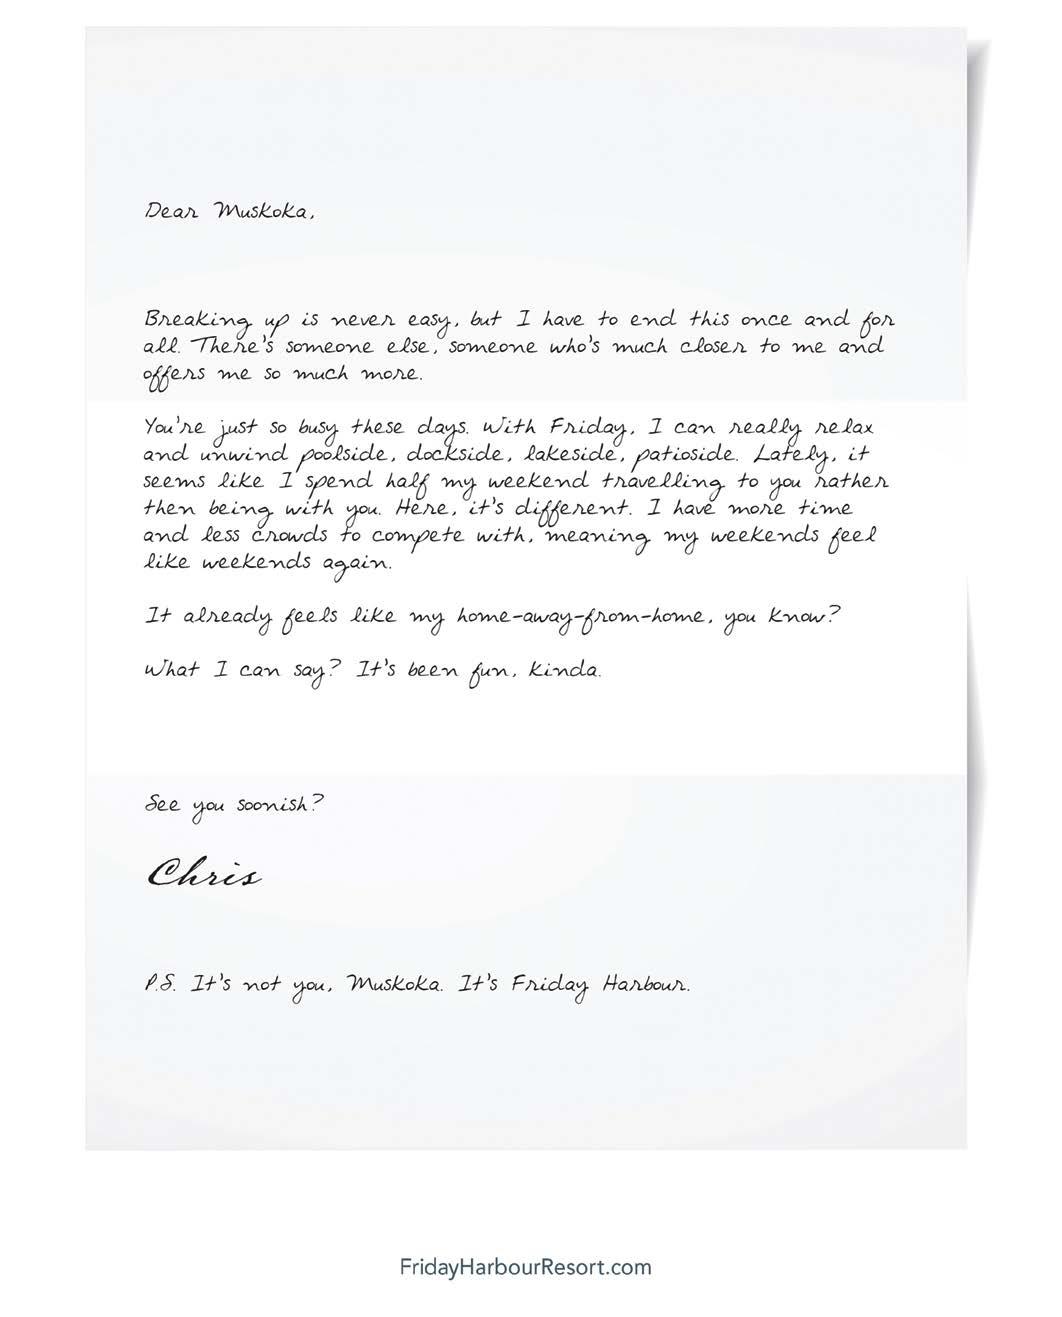 Dear Muskoka,
Breaking up is never easy, but I have to end this once and for
all. There's someone else, someone who's much closer to me and
offers me so much more.
You're just so busy these days. With Friday, I can really relax
and unwind poolside, dockside, lakeside, patioside. Lately, it
seems like I spend half my weekend travelling to you rather
then being with you. Here, it's different. I have more time
and less crowds to compete with, meaning my weekends feel
like weekends again.
It already feels like my home-away-from-home, you know?
What I can say? It's been fun, kinda.
See you soonish?
Chris
P.S. It's not you, Muskoka. It's Friday Harbour.
FridayHarbourResort.com